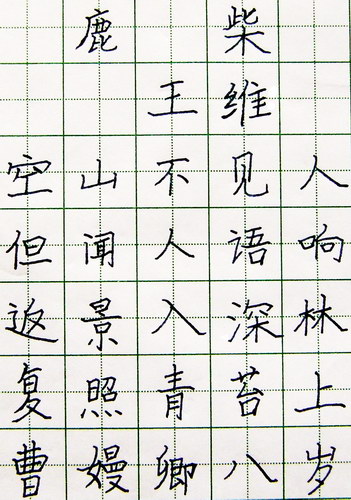 鹿柴
王维
空山不见人
但闻人语响
返景入深林
复照青苔上
曹嫚卿八岁